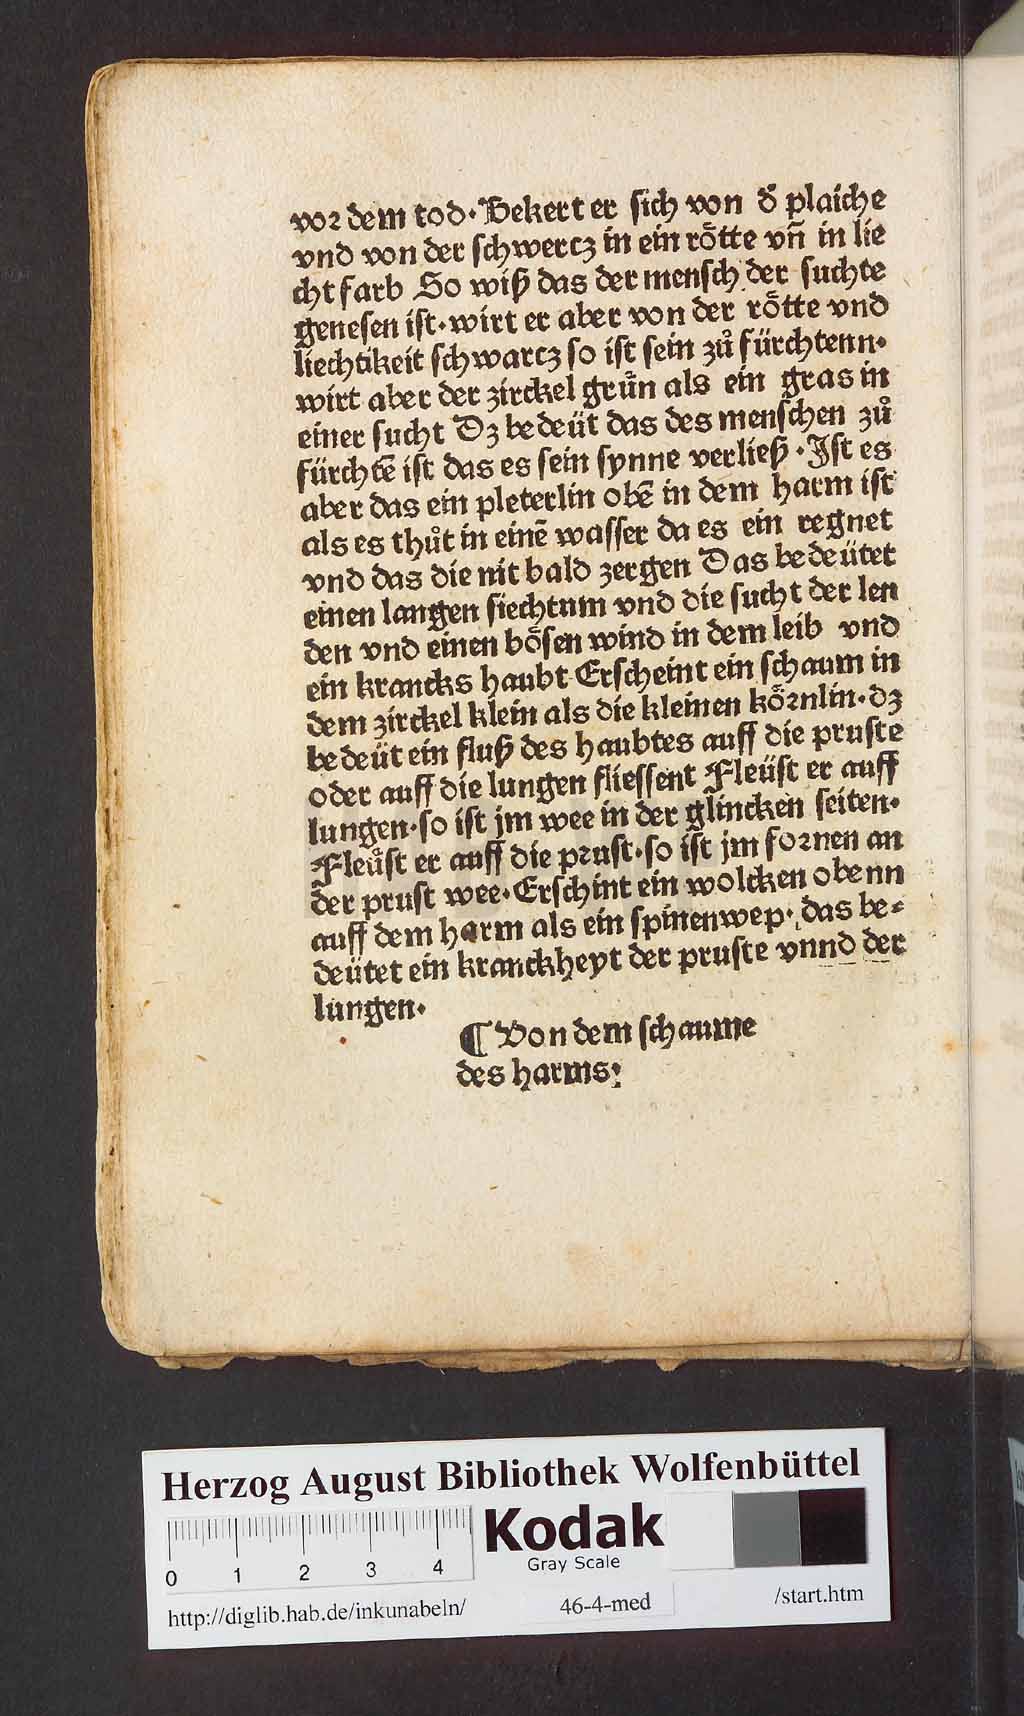 vor dem tod. Bekert er sich von d̕ plaiche
vnd von der schwertz in ein rötte vn̄ in lie
cht farb So wiß das der mensch der suchte
genesen ist. wirt er aber von der rötte vnd
liechtikeit schwartz so ist sein zů fürchtenn.
wirt aber der zirckel grün als ein gras in
einer sucht Dz bedeüt das des menschen zů
fürchtē ist das es sein synne verließ. Ist es
aber das ein pleterlin obē in dem harm ist
als es thůt in einē wasser da es ein regnet
vnd das die nit bald zergen Das bedeütet
einen langen siechtum vnd die sucht der len
den vnd einen bösen wind in dem leib vnd
ein krancks haubt Erscheint ein schaum in
dem zirckel klein als die kleinen körnlin. dz
bedeüt ein fluß des haubtes auff die pruste
oder auff die lungen fliessent Fleüst er auff
lungen. so ist jm wee in der glincken seiten.
Fleüst er auff die prust. so ist jm fornen an
der prust wee. Erschint ein wolcken obenn
auff dem harm als ein spinenwep. das be⸗
deütet ein kranckheyt der pruste vnnd der
lungen.
¶ Von dem schaume
des harms:
Herzog August Bibliothek Wolfenbüttel
Kodak
Gray Scale
0 1 2 3 4
http://diglib.hab.de/inkunabeln/ 46-4-med /start.htm